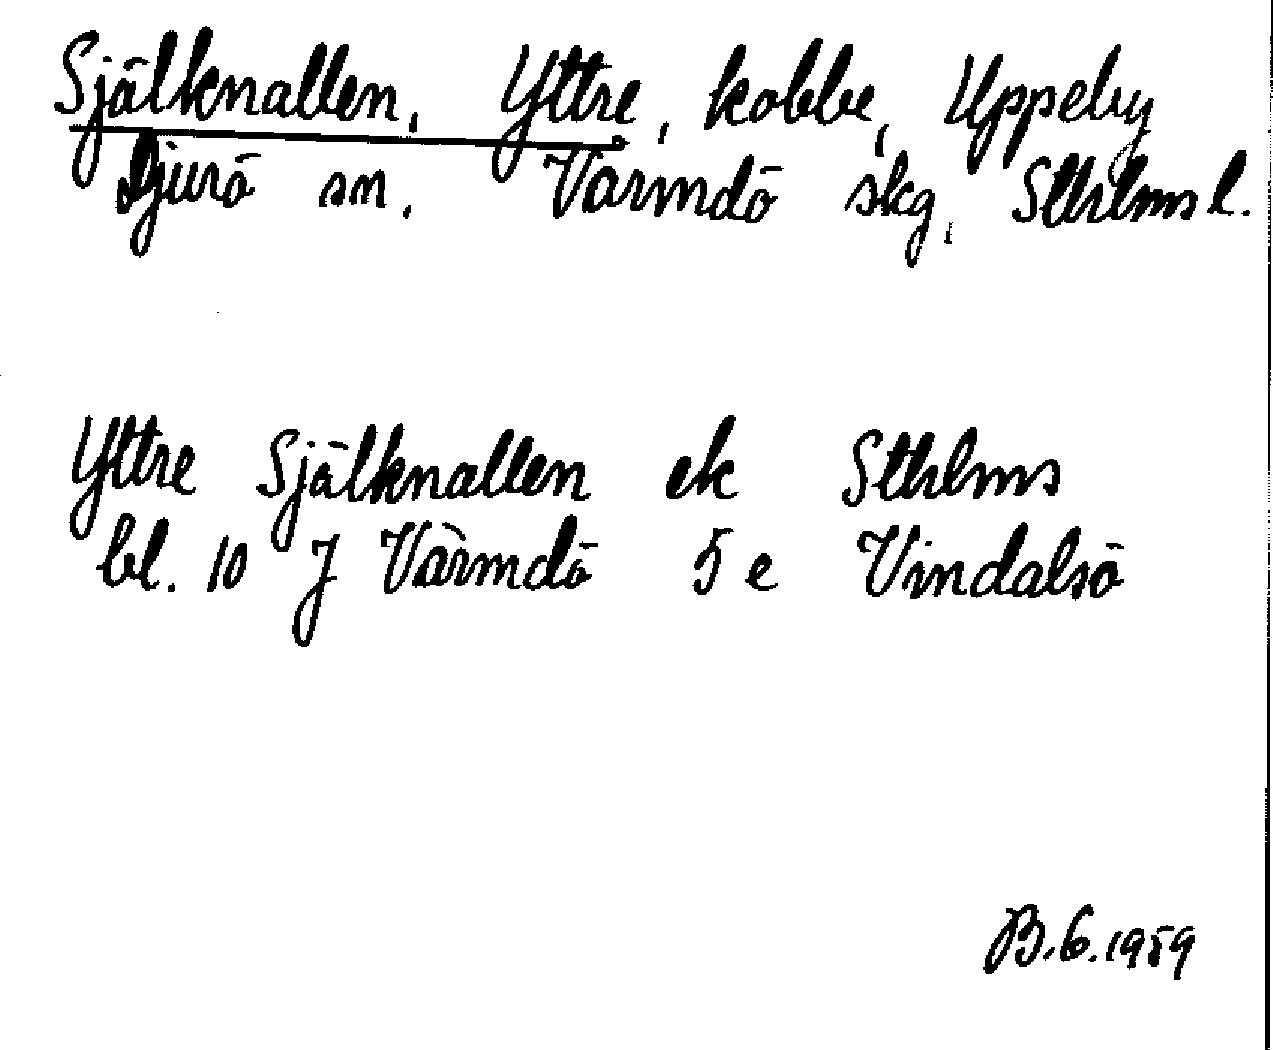 Själknallen, Yttre, kobbe, Uppeby
Djurö sn. Värmdö skg, Sthlms l.
Yttre Själknallen ek Sthlms
bl. 10 J Värmdö 5 e Vindalsö
B.G. 1959